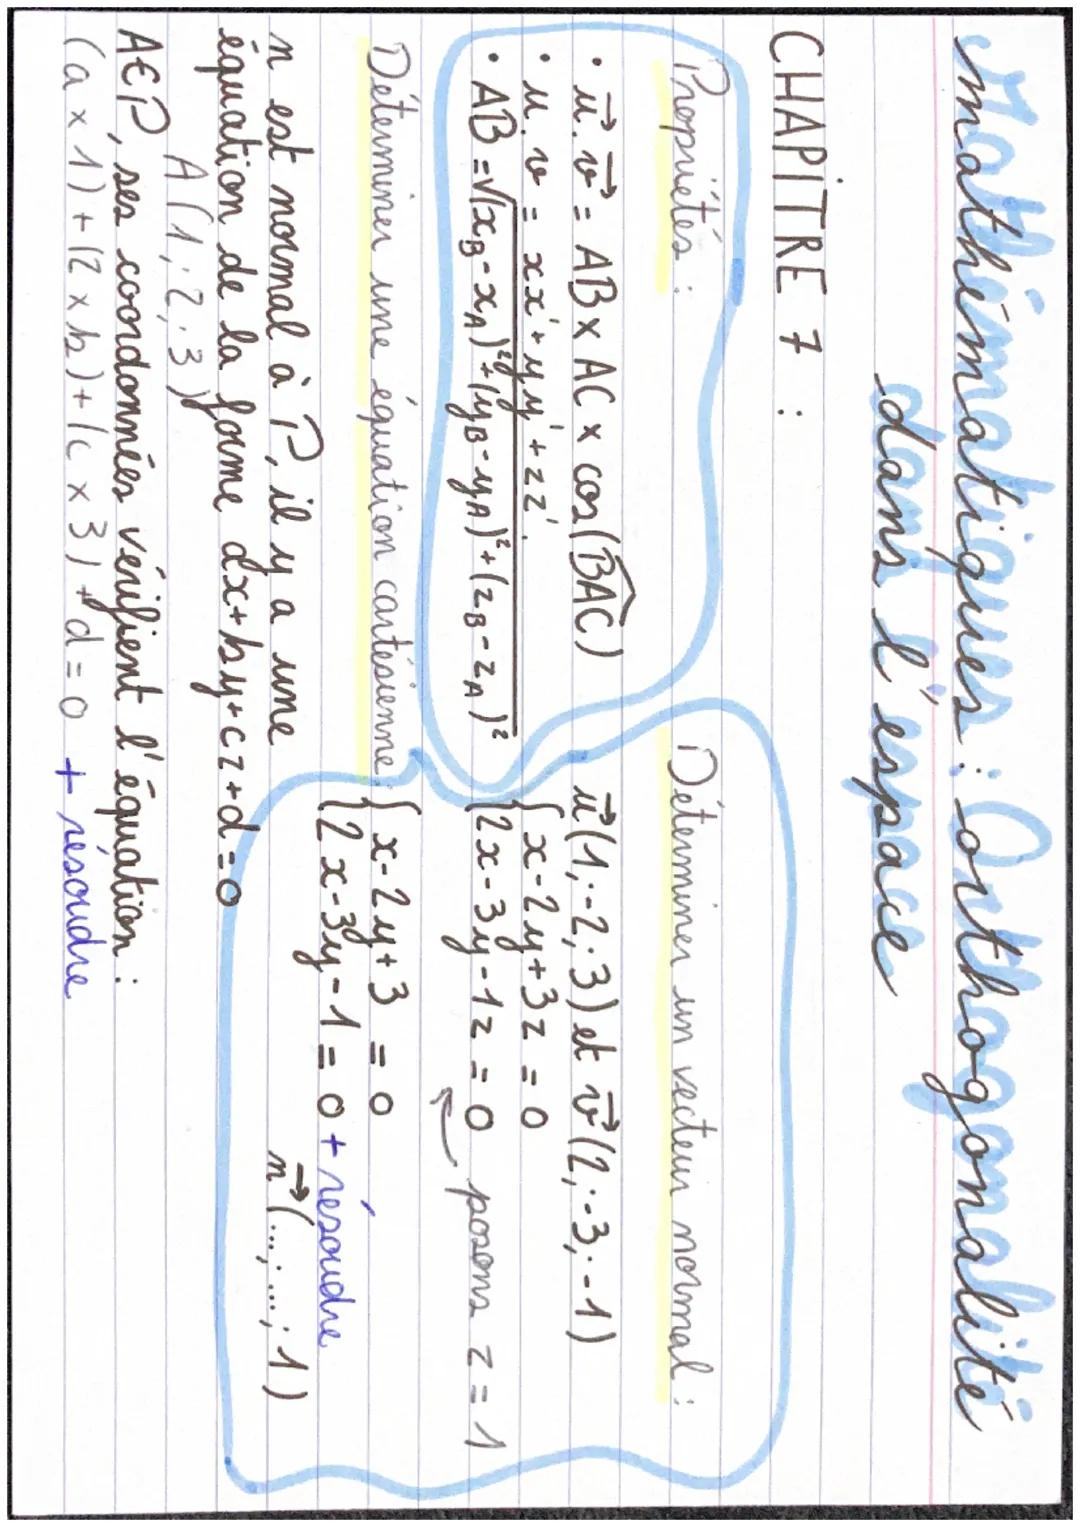 Mathématiques : Orthogonalité
dans l'espace
CHAPITRE 7 :
Propriétés :
• u⃗.v⃗ = AB x AC x cos(B̂AC)
• u.v = xx' + yy' + zz'.
• AB = √(x_B - x_A)² + (y_B - y_A)² + (z_B - z_A)²
Déterminer un vecteur normal :
u⃗(1;-2;3) et v⃗(2;-3;-1)
{ x - 2y + 3z = 0
{ 2x - 3y - 1z = 0 posons z = 1
{ x - 2y + 3 = 0
{ 2x - 3y - 1 = 0 + résoudre
n⃗(...;...;1)
Déterminer une équation cartésienne
n est normal à P, il y a une
équation de la forme ax + by + cz + d = 0
A(1;2;3)
A∈P, ses coordonnées vérifient l'équation :
(a x 1) + (2 x b) + (c x 3) + d = 0 + résoudre